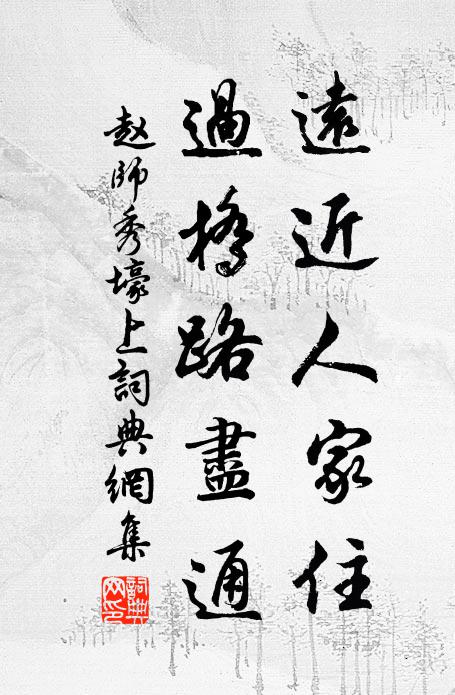 遠近人家住
過橋路盡通
赵師秀壕上詞典網集
詞典网印